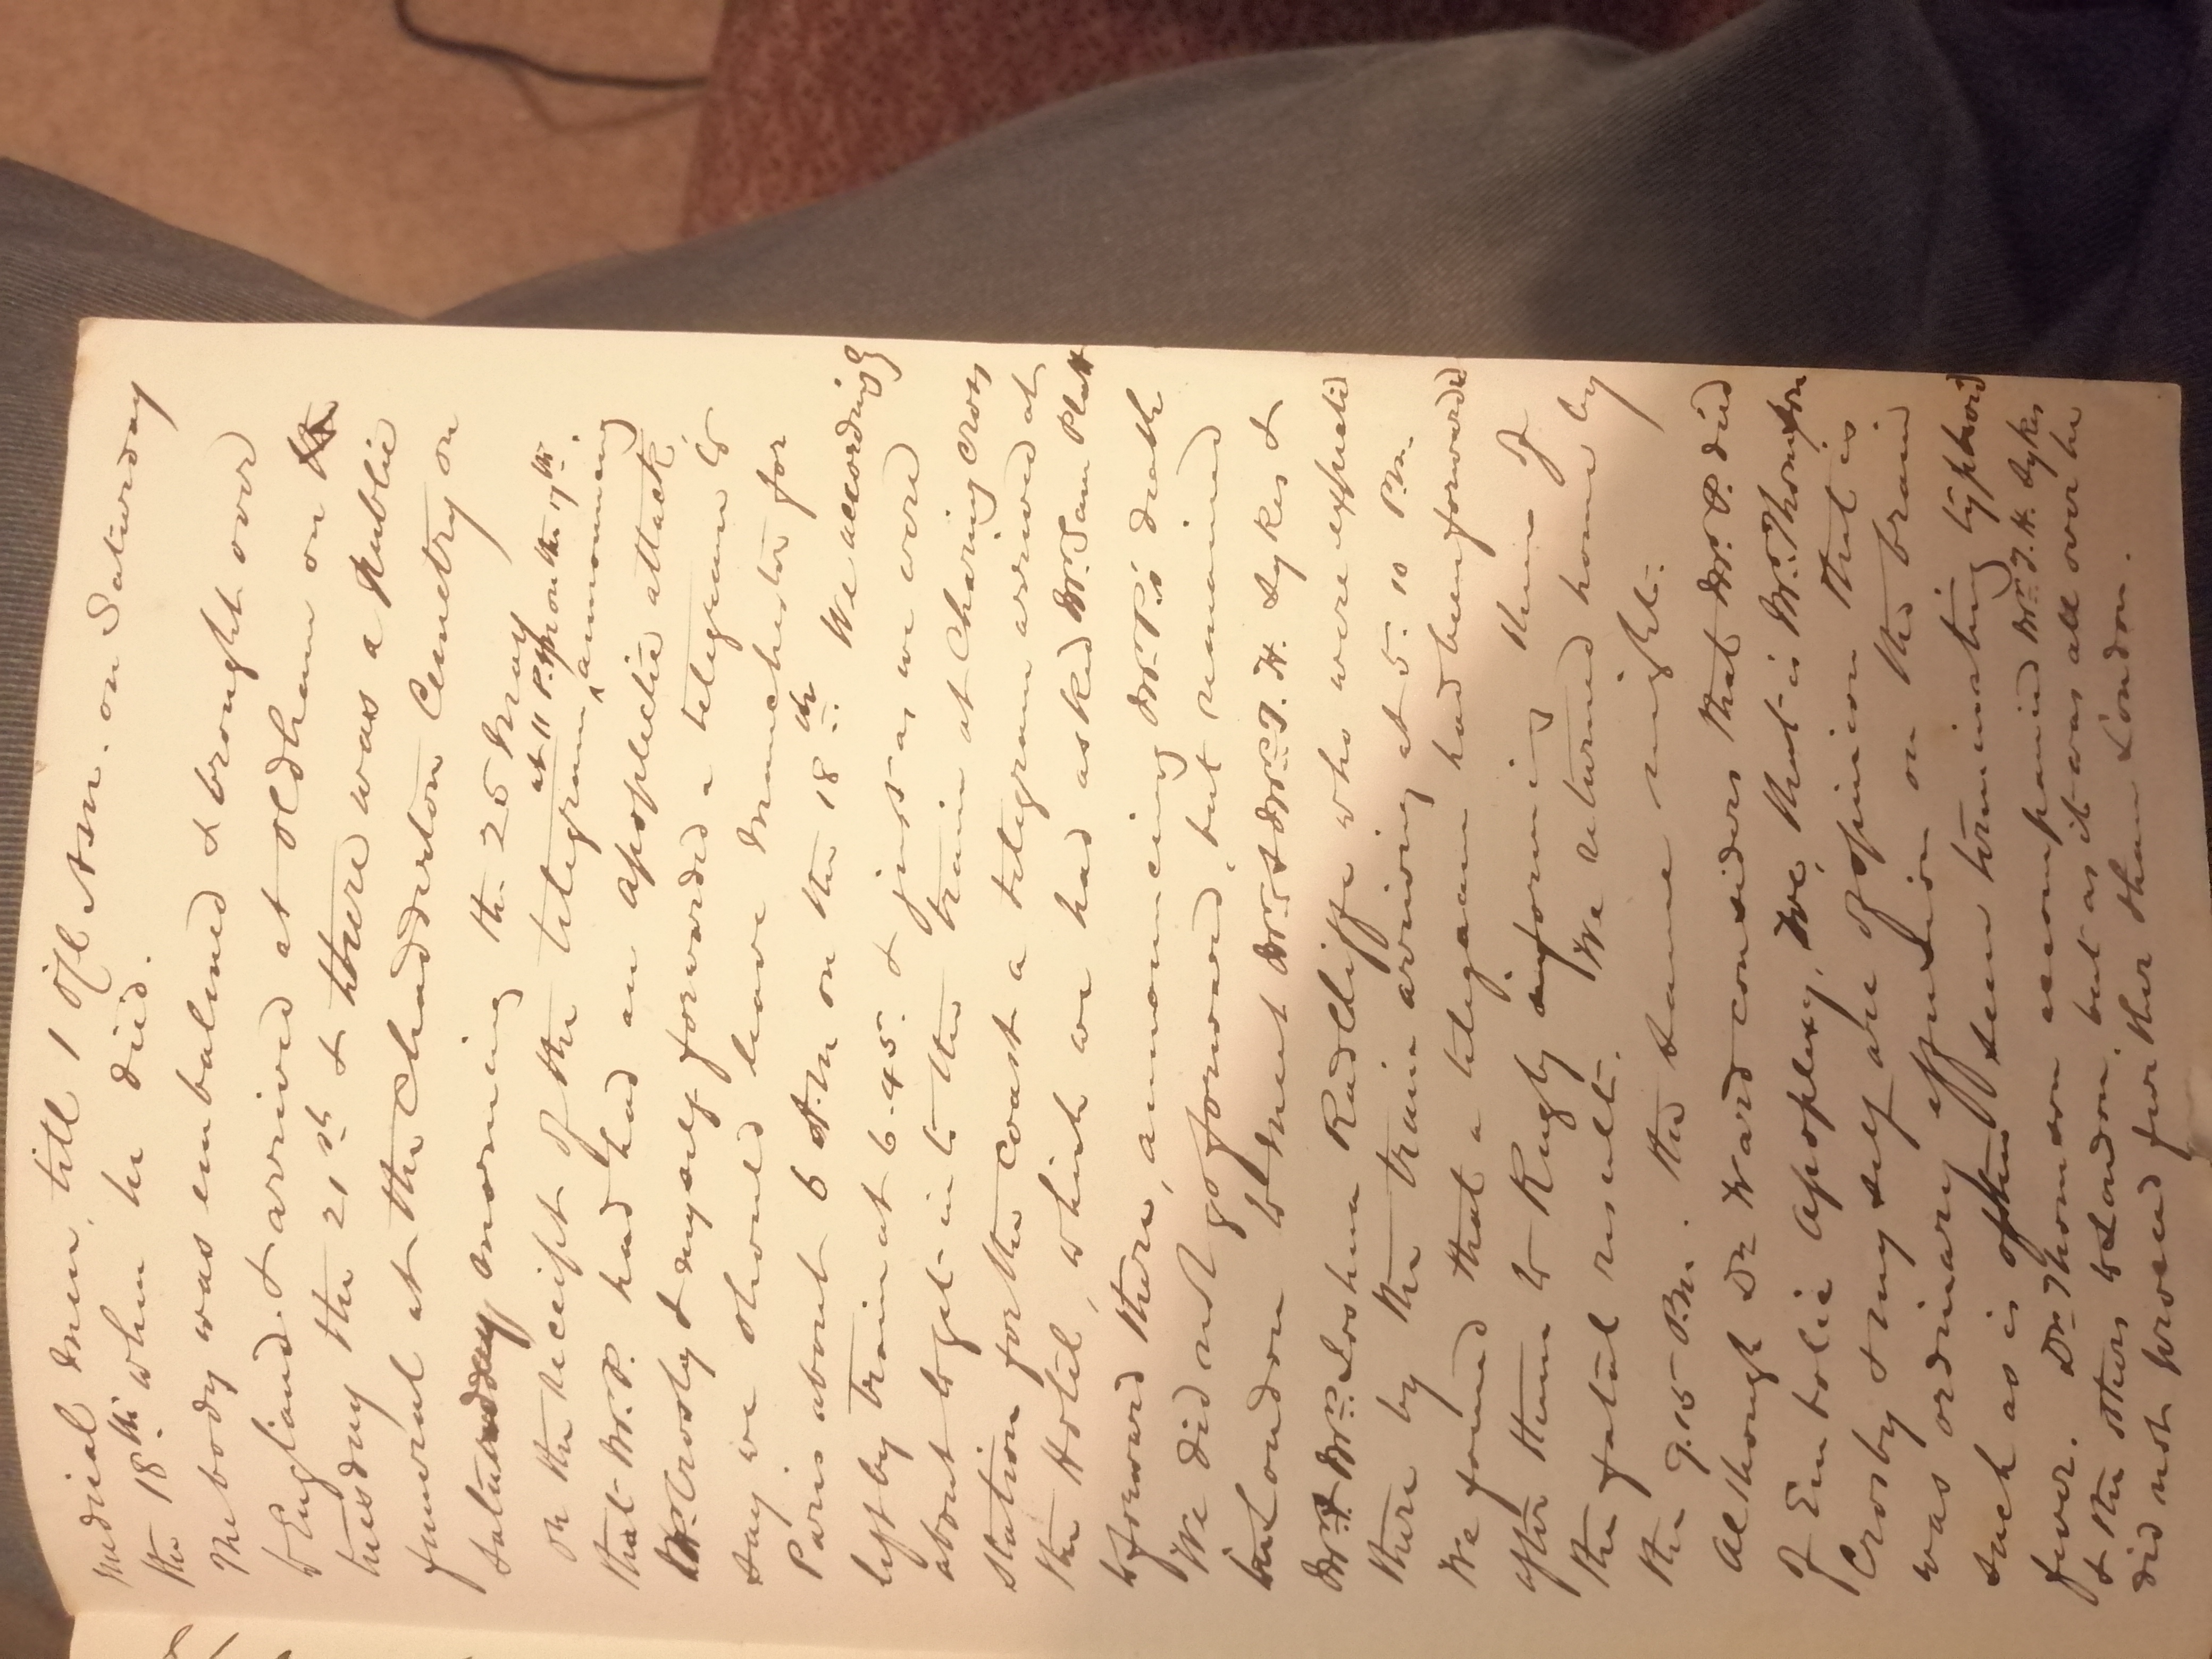 Medical men, till 1 o'cl. A.m. on Saturday
the 18th. when he died.
The body was embalmed & brought over
to England. & arrived at Oldham on
tuesday the 21st & there was a Public
funeral at the Chadderton Cemetry on
Saturday morning the 25 May
at 11 P.M. on the 17th.
On the receipt of the telegram announcing
that Mr. P. had had an apoplectic attack
Mr. Crosby & myself forwarded a telegram to
say we should leave Manchester for
Paris about 6 A.M on the 18th. We accordingly
left by train at 6.45. & just as we were
about to get into the train at Charing Cross
station for the coast a telegram arrived at
the Hotel, which we had asked Mr. Sam Platt
to forward there, announcing Mr. P's death
We did not go forward, but remained
in London to meet Mr. & Mrs. T. H. Sykes &
Mr. & Mrs. Joshua Radcliffe who were expected
there by the train arriving at 5.10 P.m.
We found that a telegram had been forwarded
after them to Rugby informing them of
the fatal result. We returned home by
the 9.15 Pm. the same night.
Although Dr Ward considers that Mr. P. died
of Embolic Apoplexy, We, that is Mr. Thompson
Crosby & myself are of opinion that it is
was ordinary effusion on the brain
such as is often seen terminating typhoid
fever. Dr Thomson accompanied Mr. T. H. Sykes
& the others to London, but as it was all over he
did not proceed further than London.